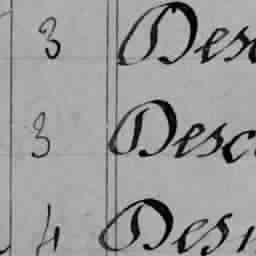 3 Desc
3 Desc
4 Des